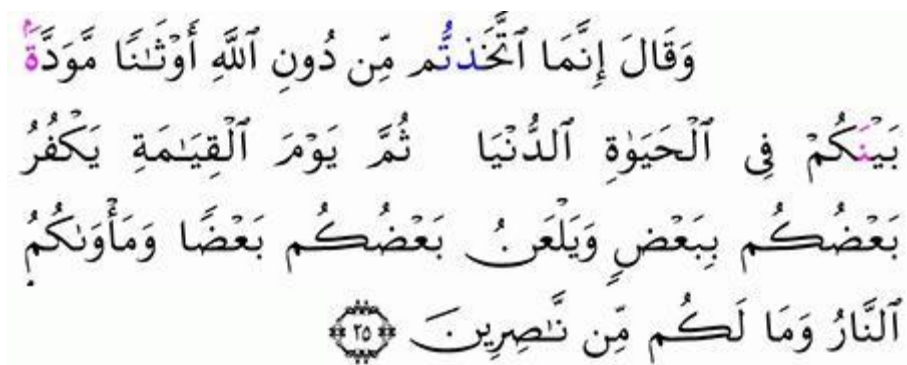 وَقَالَ إِنَّمَا ٱتَّخَذتُّم مِّن دُونِ ٱللَّهِ أَوْثَـٰنًا مَّوَدَّةَۢ
بَيْنَكُمْ فِى ٱلْحَيَوٰةِ ٱلدُّنْيَا ثُمَّ يَوْمَ ٱلْقِيَـٰمَةِ يَكْفُرُ
بَعْضُكُم بِبَعْضٍ وَيَلْعَنُ بَعْضُكُم بَعْضًا وَمَأْوَىٰكُمُ
ٱلنَّارُ وَمَا لَكُم مِّن نَّـٰصِرِينَ ٢٥